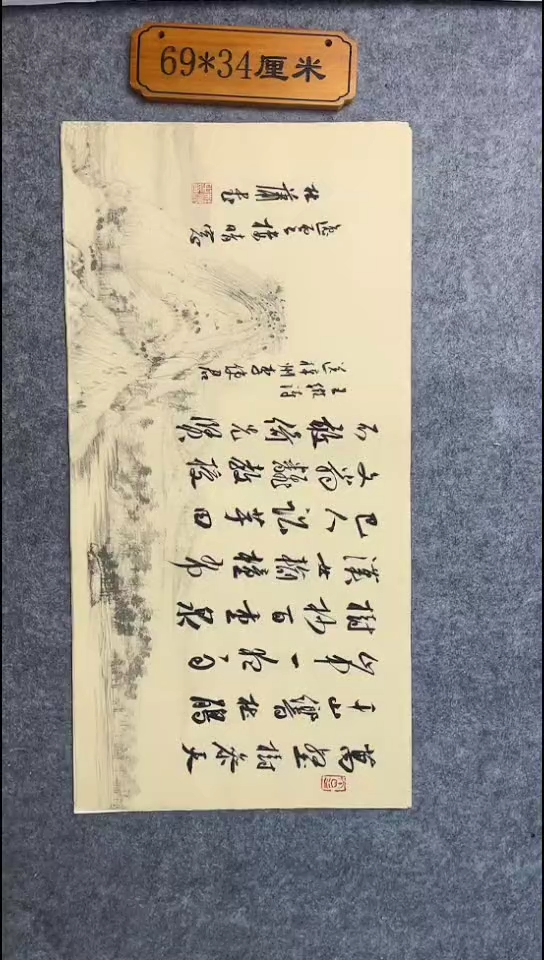 69*34厘米
萬壑樹參天
千山響杜鵑
山中一夜雨
樹杪百重泉
漢女輸橦布
巴人訟芋田
文翁翻教授
不敢倚先賢
王維詩
送梓州李使君
樓晴窗
書